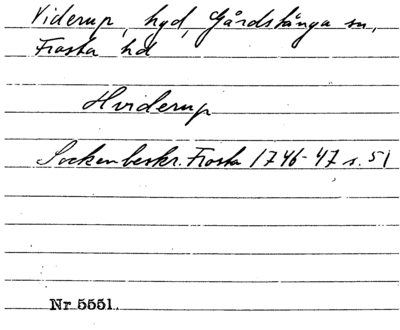 Viderup, hgd, Gårdstånga sn,
Frosta hd
Hviderup
Sockenbeskr. Frosta 1746-47 s. 51
Nr 5551.